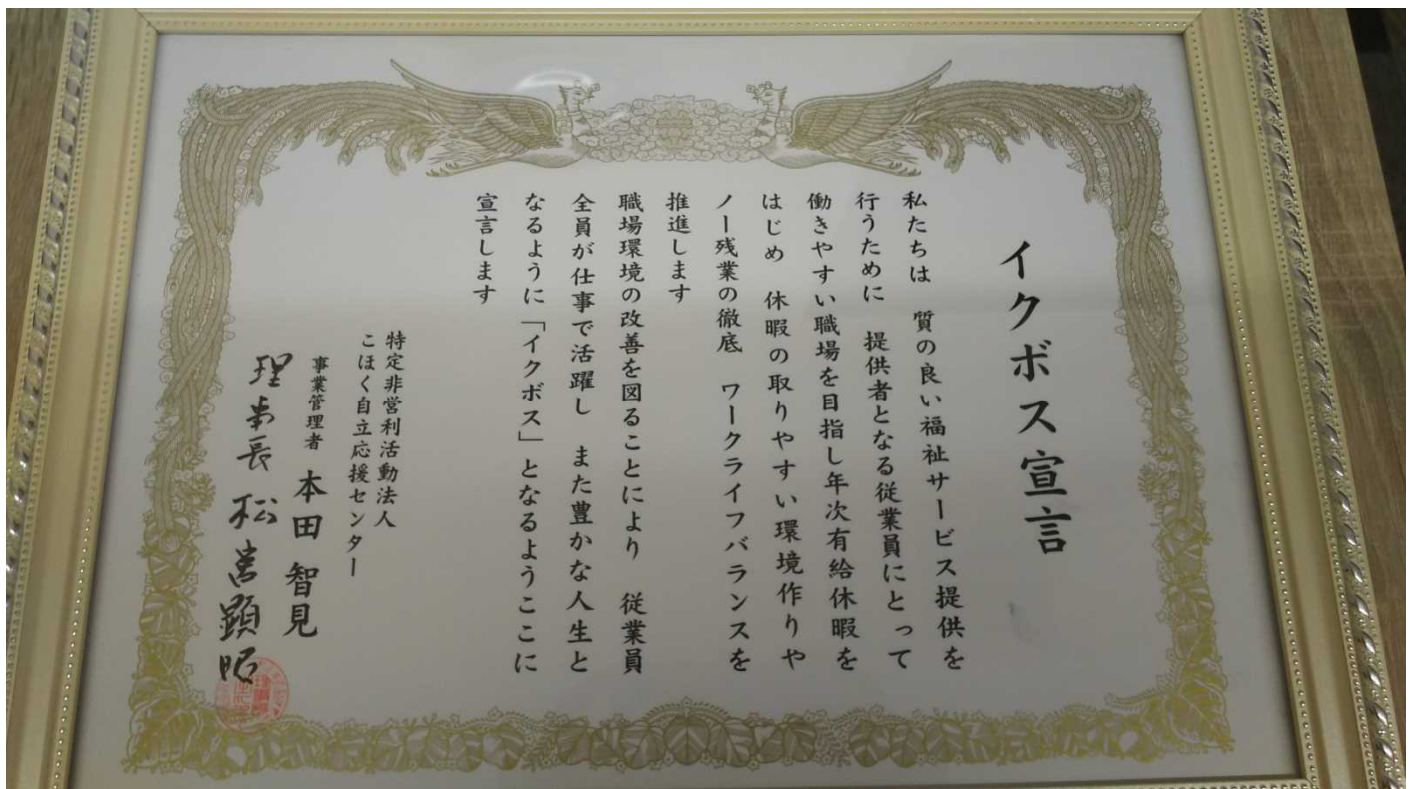 イクボス宣言
私たちは 質の良い福祉サービス提供を
行うために 提供者となる従業員にとって
働きやすい職場を目指し年次有給休暇を
はじめ 休暇の取りやすい環境作りや
ノー残業の徹底 ワークライフバランスを
推進します
職場環境の改善を図ることにより 従業員
全員が仕事で活躍し また豊かな人生と
なるように「イクボス」となるようここに
宣言します
特定非営利活動法人
こほく自立応援センター
事業管理者 本田 智見
理事長 松宮顕昭